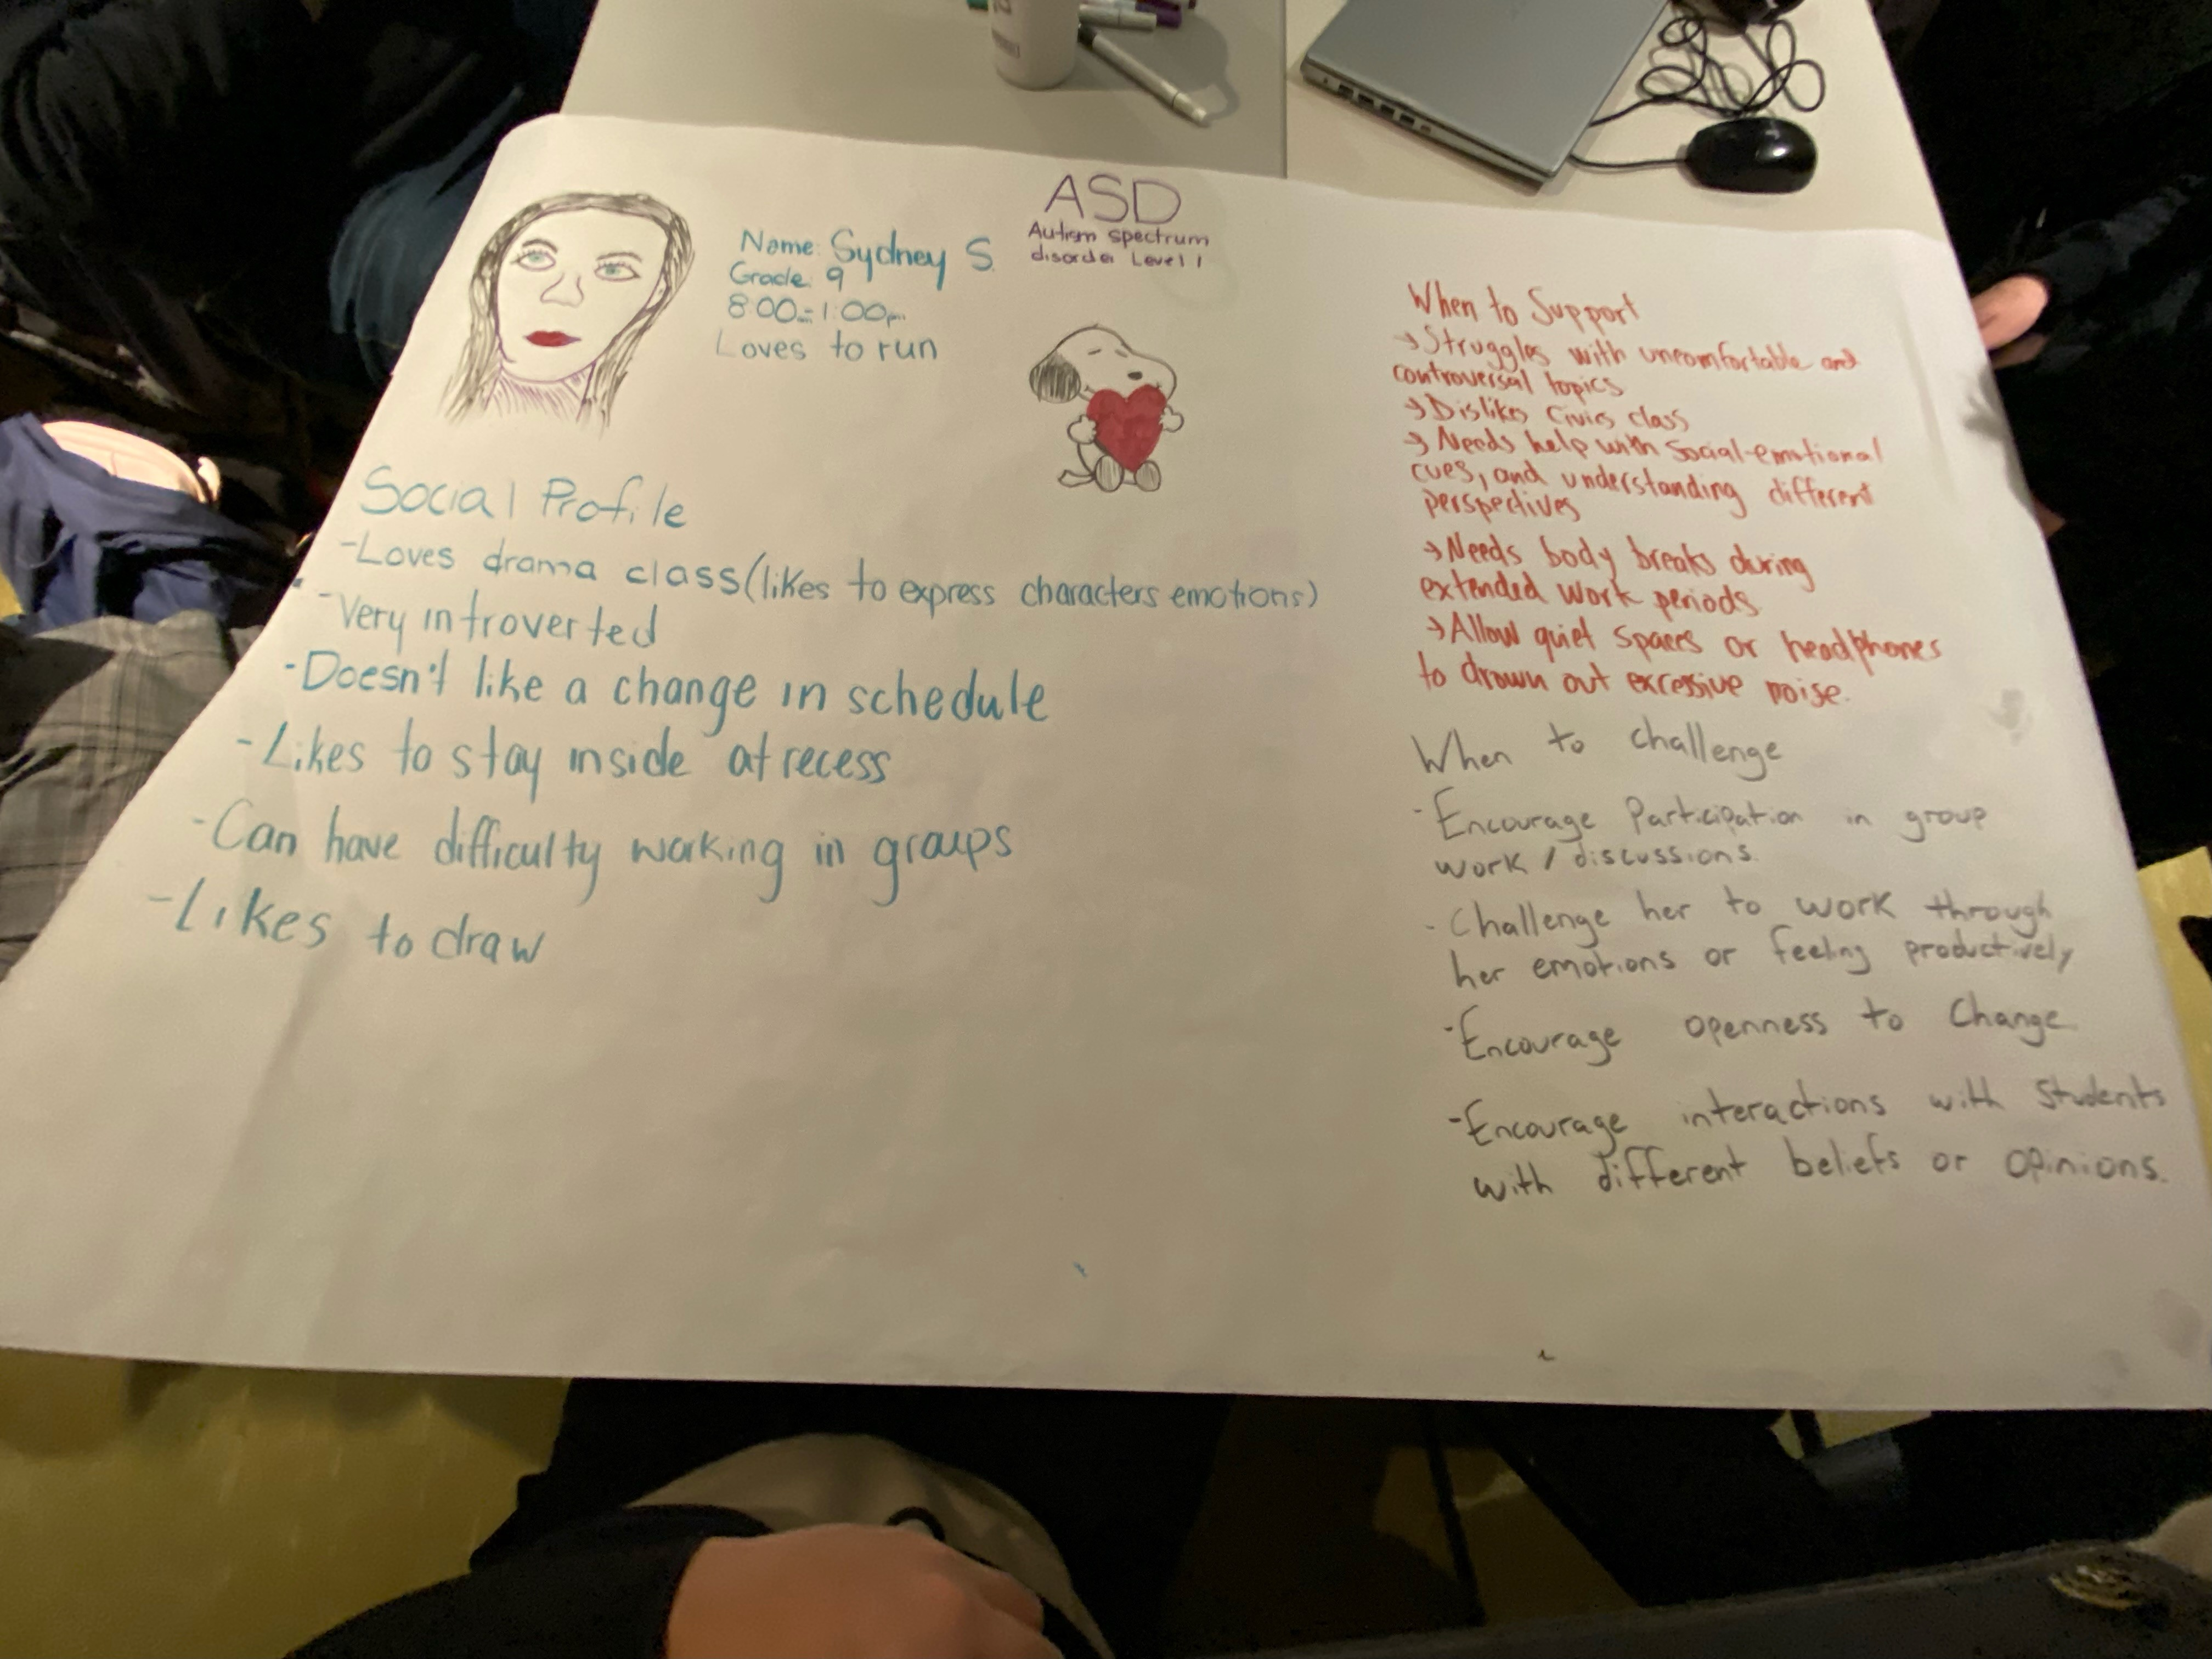 Name: Sydney S.
Grade: 9
8:00am-1:00pm
Loves to run
ASD
Autism spectrum
disorder Level 1
Social Profile
-Loves drama class (likes to express characters emotions)
-Very introverted
-Doesn't like a change in schedule
-Likes to stay inside at recess
-Can have difficulty working in groups
-Likes to draw
When to Support
→Struggles with uncomfortable and
controversal topics
→Dislikes Civics class
→Needs help with Social-emotional
cues, and understanding different
perspectives
→Needs body breaks during
extended work periods
→Allow quiet spaces or headphones
to drown out excessive noise.
When to challenge
-Encourage Participation in group
work / discussions.
-Challenge her to work through
her emotions or feeling productively
-Encourage openness to Change
-Encourage interactions with Students
with different beliefs or opinions.